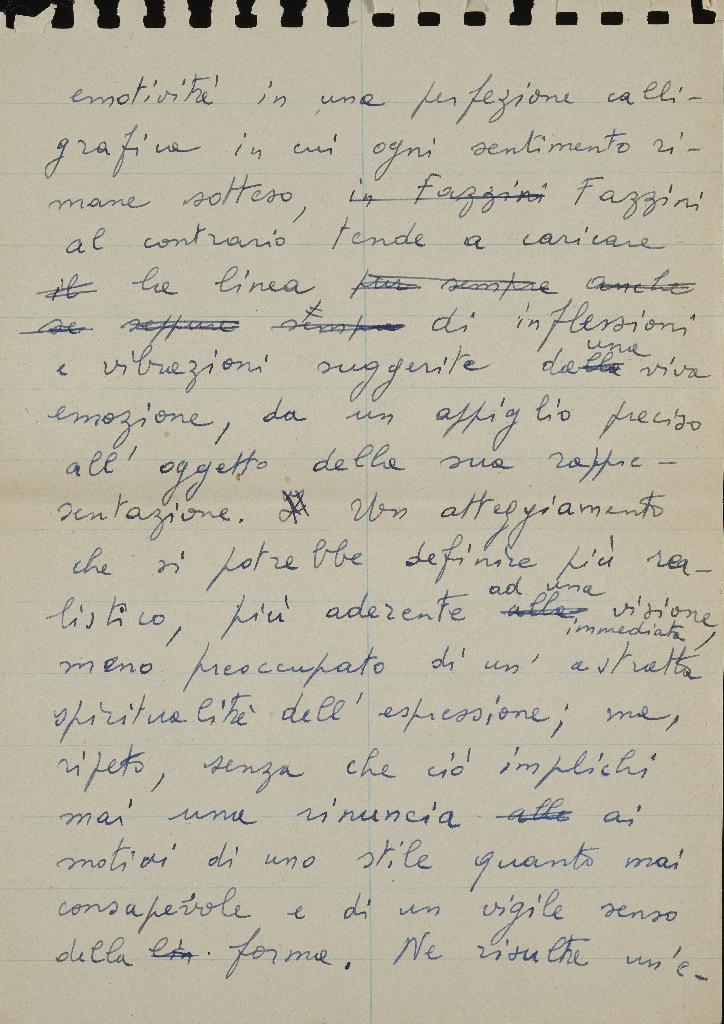 emotività in una perfezione calli-
grafica in cui ogni sentimento ri-
mane sotteso, in Fazzini Fazzini
al contrario tende a caricare
il la linea pur sempre anche
se seppure sempre di inflessioni
una
e vibrazioni suggerite dalla viva
emozione, da un appiglio preciso
all'oggetto della sua rappre-
sentazione. Un atteggiamento
che si potrebbe definire più rea-
ad una
listico, più aderente alla visione,
immediata
meno preoccupato di un'astratta
spiritualità dell'espressione; ma,
ripeto, senza che ciò implichi
mai una rinuncia alla ai
motivi di uno stile quanto mai
consapevole e di un vigile senso
della lin. forma. Ne risulta un'e-